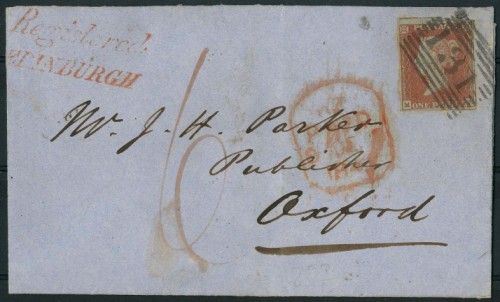 Registered
EDINBURGH
PENNY
ONE P
131
Mr. J. H. Parker
Publisher
Oxford